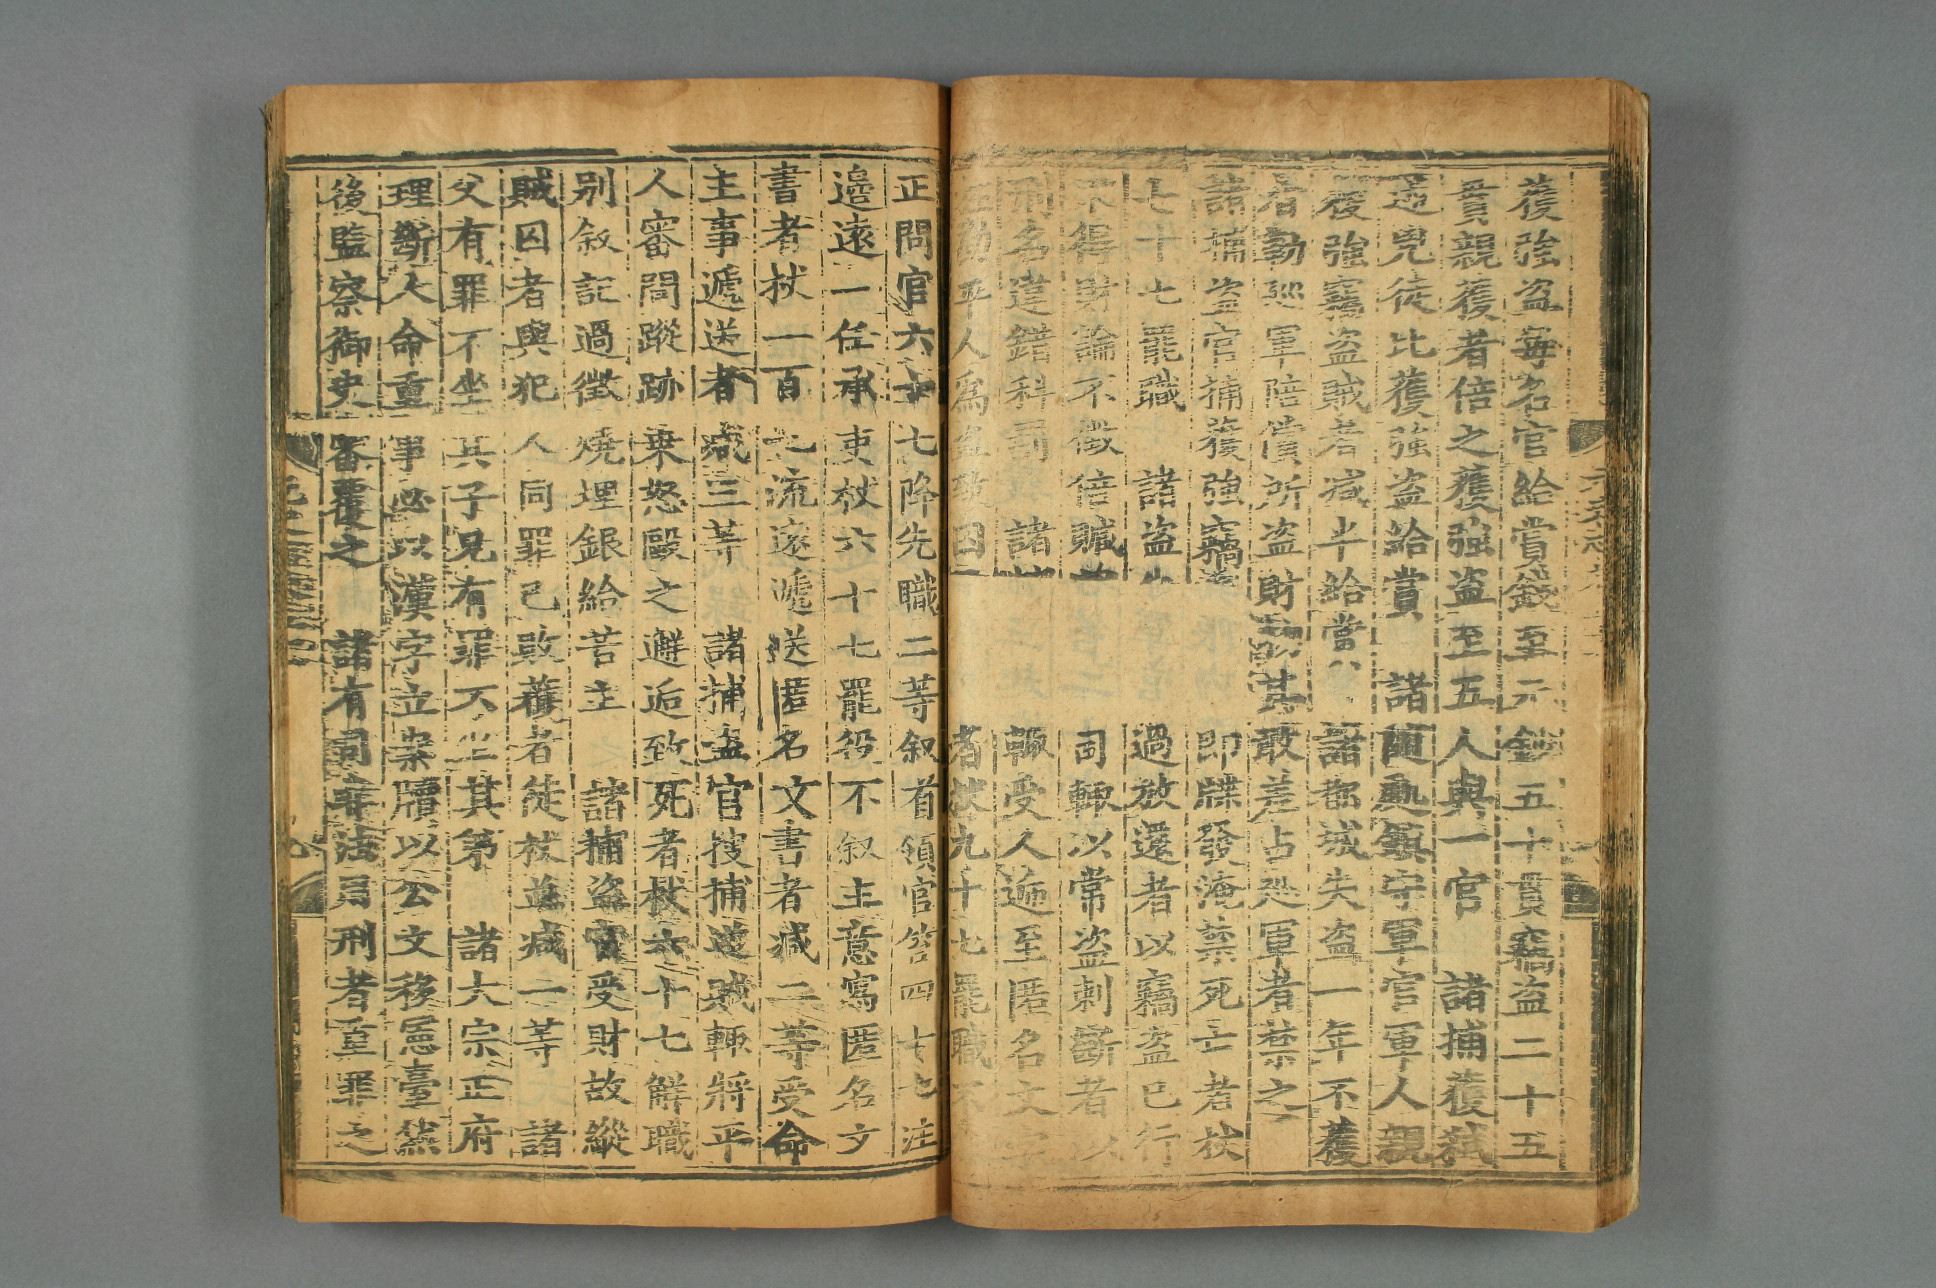 獲強盗每名官給賞錢至元鈔五十貫竊盗二十五
貫親獲者倍之獲強盗至五人與一官　諸捕獲弑
逆兇徒比獲強盗給賞　諸隨處鎮守軍官軍人親
獲強竊盗賊者減半給賞　諸都城失盗一年不獲
者勒巡軍陪償所盗財物其敢差占巡軍者禁之
諸捕盗官捕獲強竊　即牒發淹禁死亡者杖
七十七罷職　諸盗　過放還者以竊盗已行
不得財論不徵倍贓　司輒以常盗刺斷者以
刑名違錯科罰　諸　輒受人遞至匿名文字
　勘平人為盗致囚　者杖九十七罷職不
正問官六十七降先職二等叙首領官笞四十七注
邉逺一任承吏杖六十七罷役不叙主意寫匿名文
書者杖一百七流逺遞送匿名文書者减二等受命
主事遞送者减三等　諸捕盗官搜捕逆賊輒將平
人審問蹤跡乗怒毆之邂逅致死者杖六十七解職
别叙記過徵燒埋銀給苦主　諸捕盗官受財故縱
賊囚者與犯人同罪已敗獲者徒杖並减一等　諸
父有罪不坐其子兄有罪不坐其弟　諸大宗正府
理斷人命重事必以漢字立案牘以公文移憲臺然
後監察御史審覆之　諸有司非法用刑者重罪之